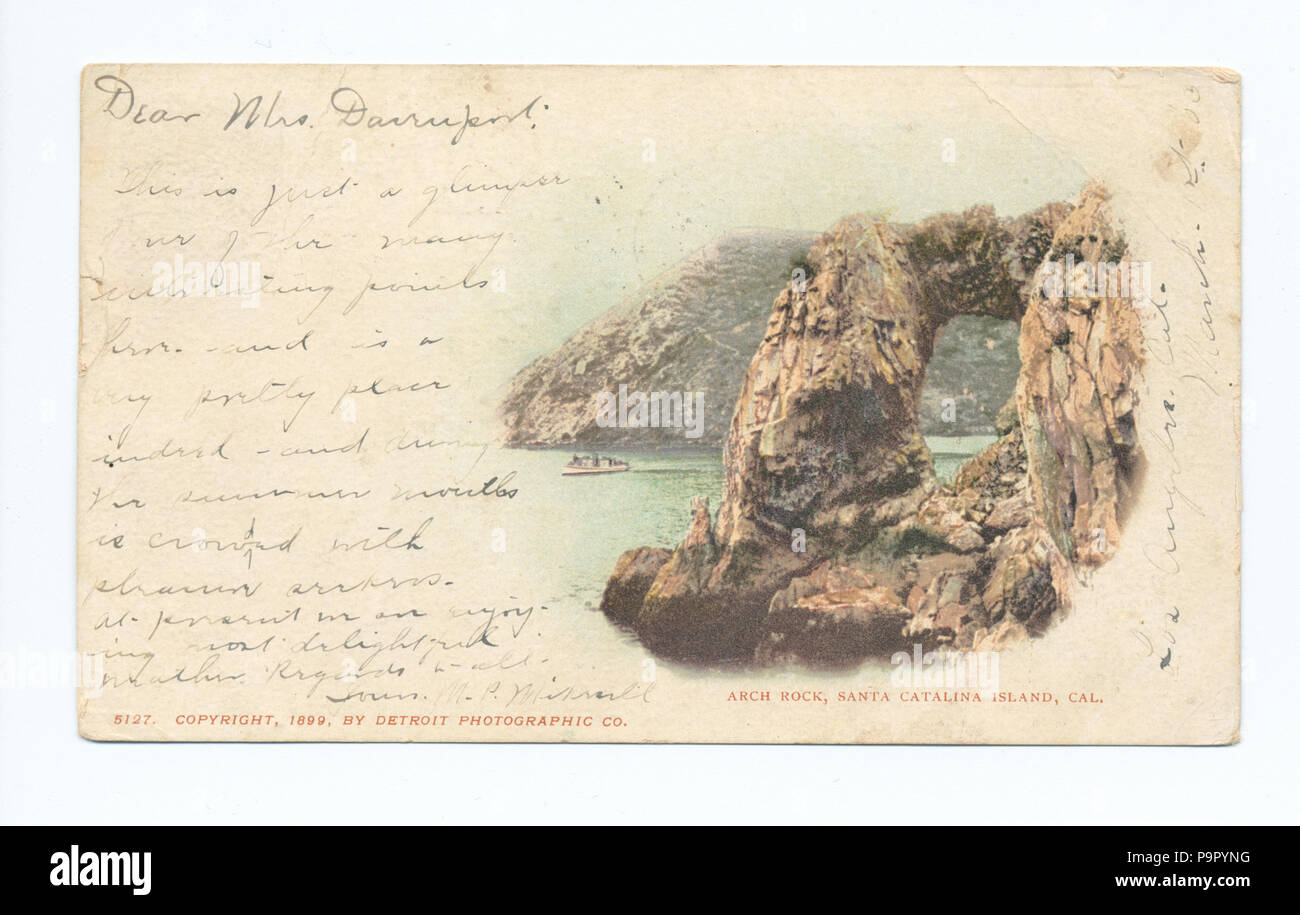 Dear Mrs. Davenport:
This is just a glimpse
of the many
interesting points
here - and is a
very pretty place
indeed - and during
the summer months
is crowded with
pleasure seekers.
at present we are enjoy-
ing most delightful
weather. Regards to all.
Yours. M. P.
5127. COPYRIGHT, 1899, BY DETROIT PHOTOGRAPHIC CO.
ARCH ROCK, SANTA CATALINA ISLAND, CAL.
Los Angeles. Cal.
March.
alamy
Image ID: P9PYNG
www.alamy.com